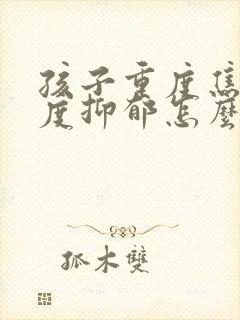 孩子重度焦
度抑郁怎麼
孤木雙